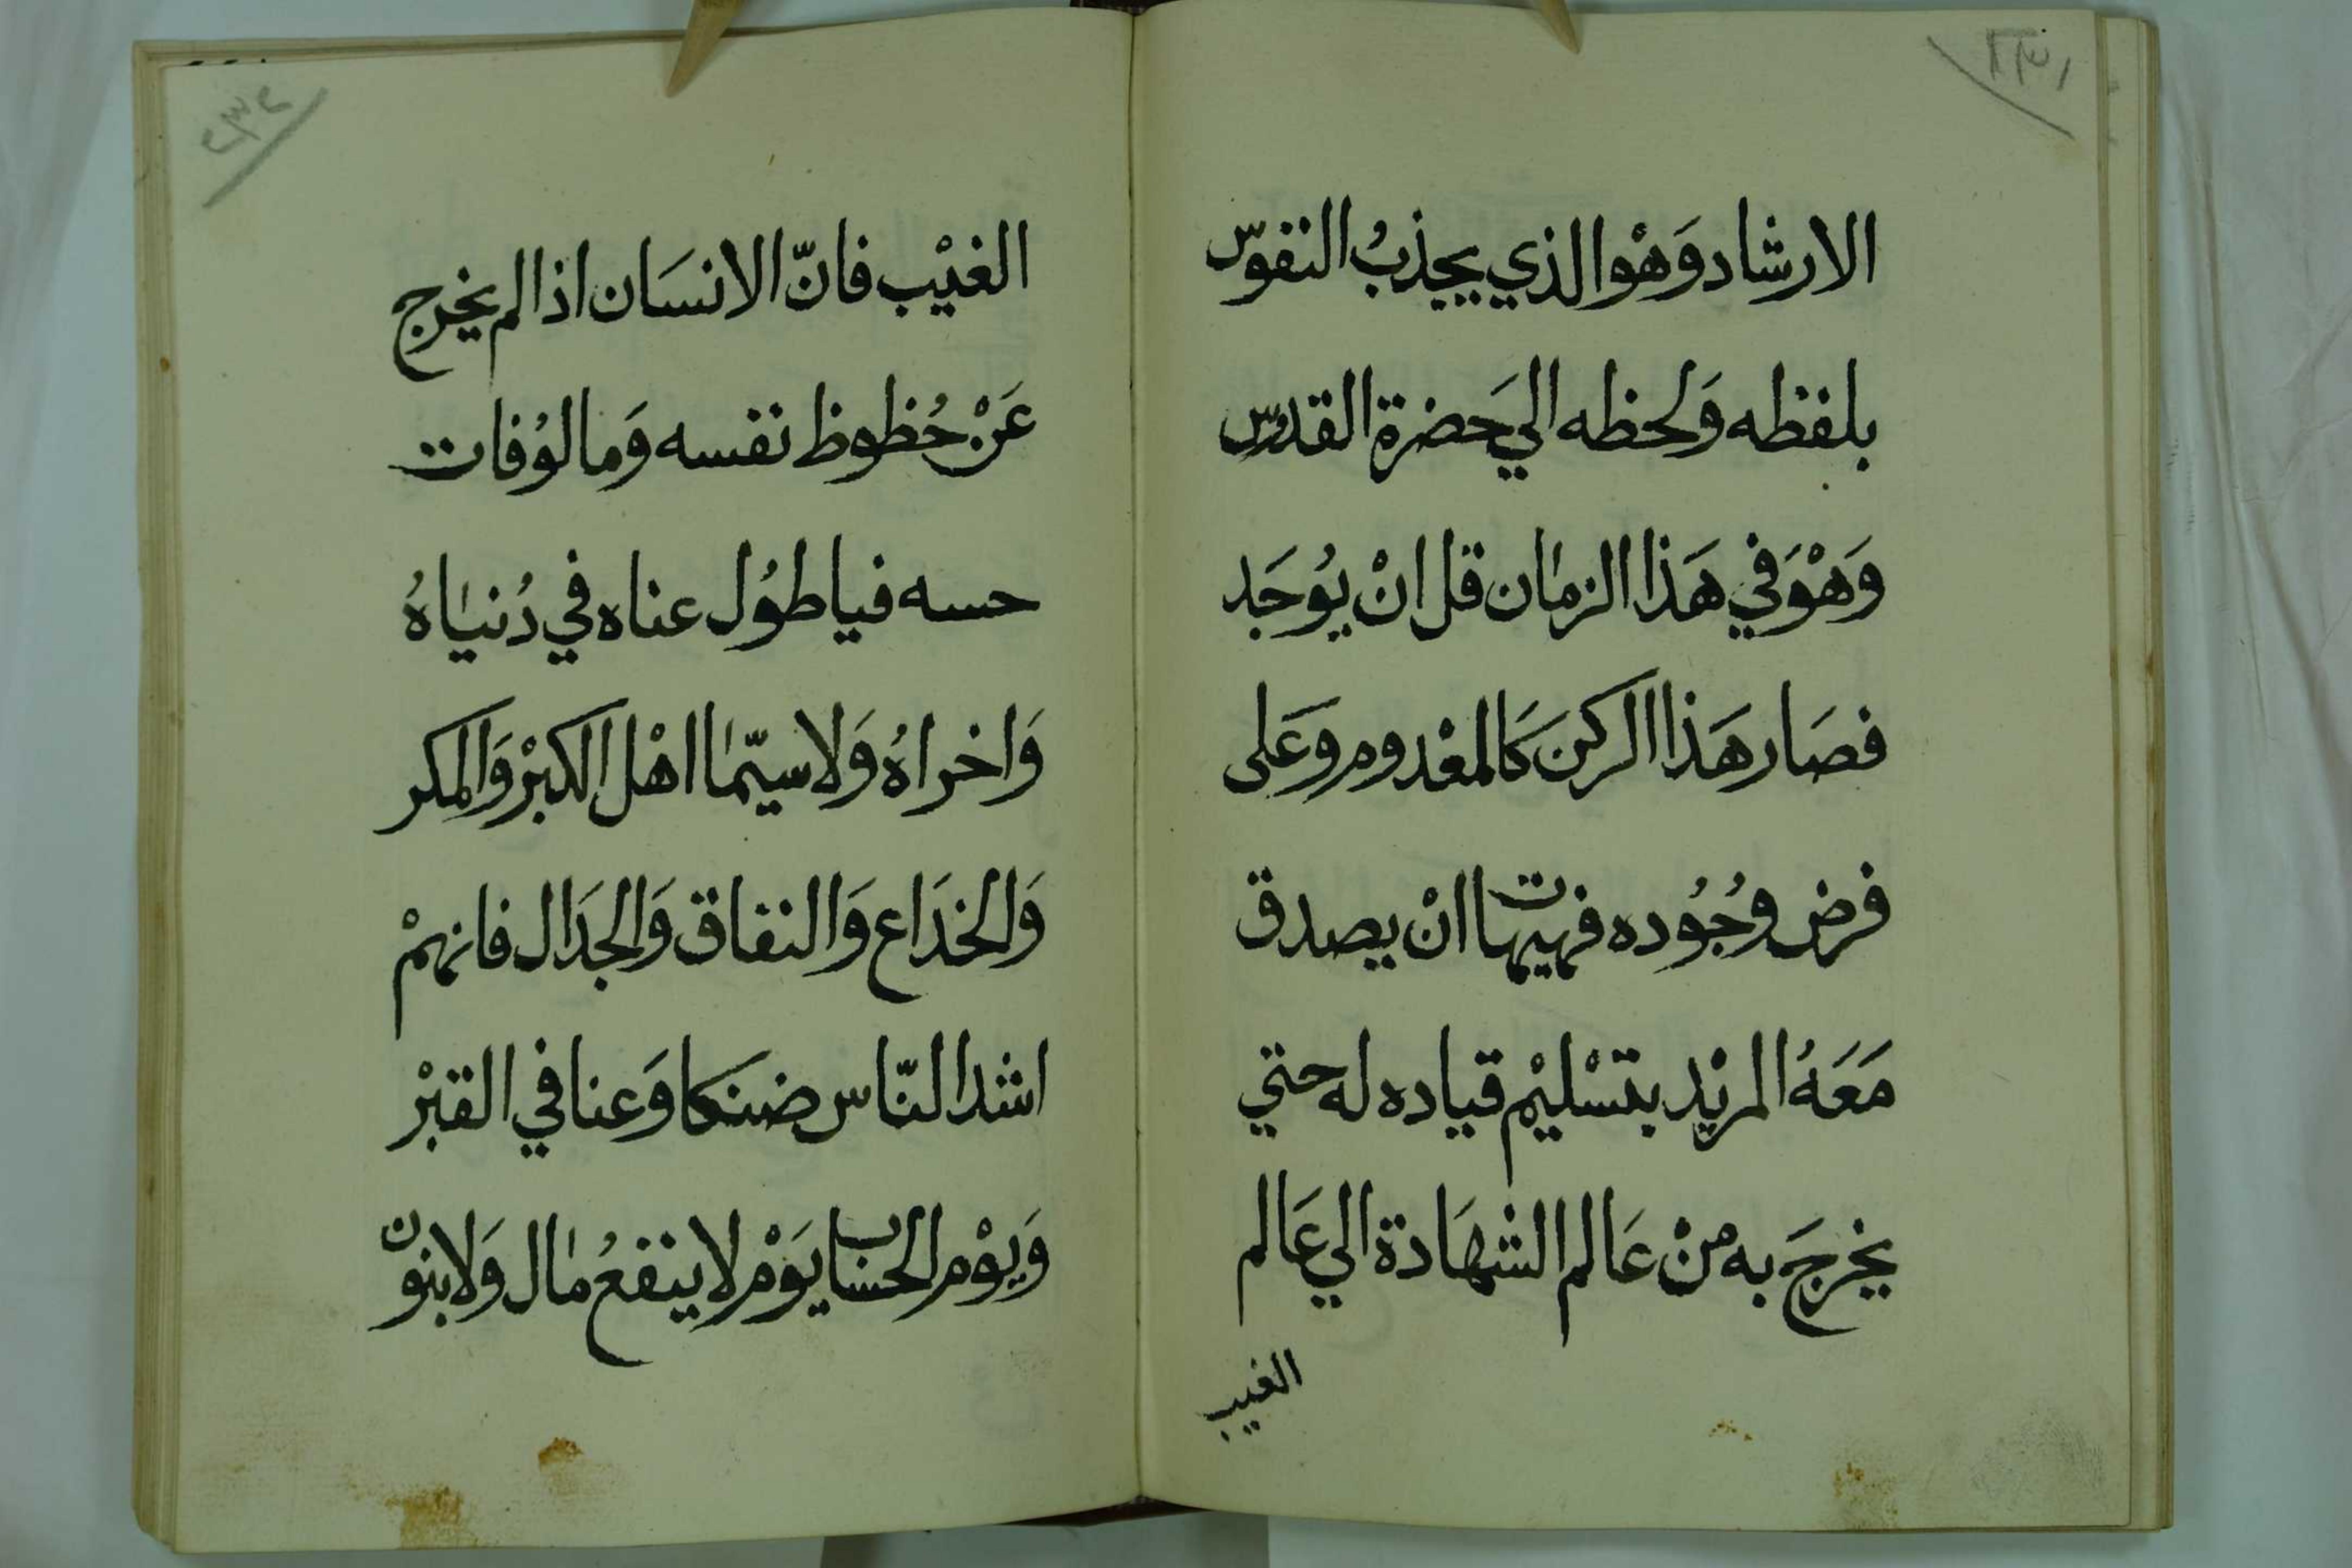 ٢٣١
الارشاد وَهْوا الذي يجذبُ النفوسّ
بلفظه وَلحظه الي حَضرة القدس
وَهْوَ في هَذا الزمان قل انْ يُوجَد
فصَار هَذا الركن كَالمعْدوم وَعَلى
فرض وُجُوده فهيهات انْ يصدق
مَعَهُ المريْد بتسْليْم قياده له حتي
يخرجَ به منْ عَالم الشهَادة الي عَالم
الغيب
٢٣٢
الغيْب فانّ الانسَان اذا لم يخرج
عَنْ حُظوظ نفسه وَمالوُفات
حسه فيا طوُل عناه في دُنياهُ
وَاخراهُ وَلا سيّما اهْل الكبْر وَالمكر
وَالخدَاع وَالنفاق وَالجدَال فانهمْ
اشد النّاس ضنكا وَعنا في القبْر
وَيوْم الحساب يَوْم لا ينفعُ مال وَلا بنون